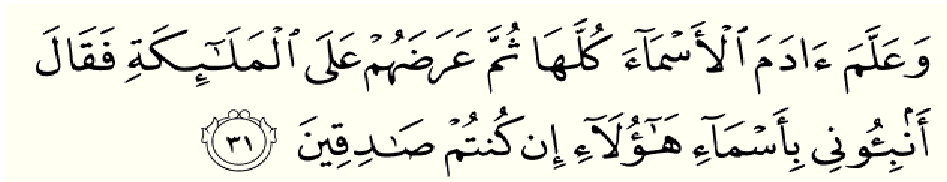 وَعَلَّمَ ءَادَمَ ٱلْأَسْمَآءَ كُلَّهَا ثُمَّ عَرَضَهُمْ عَلَى ٱلْمَلَـٰٓئِكَةِ فَقَالَ
أَنۢبِـُٔونِى بِأَسْمَآءِ هَـٰٓؤُلَآءِ إِن كُنتُمْ صَـٰدِقِينَ ٣١